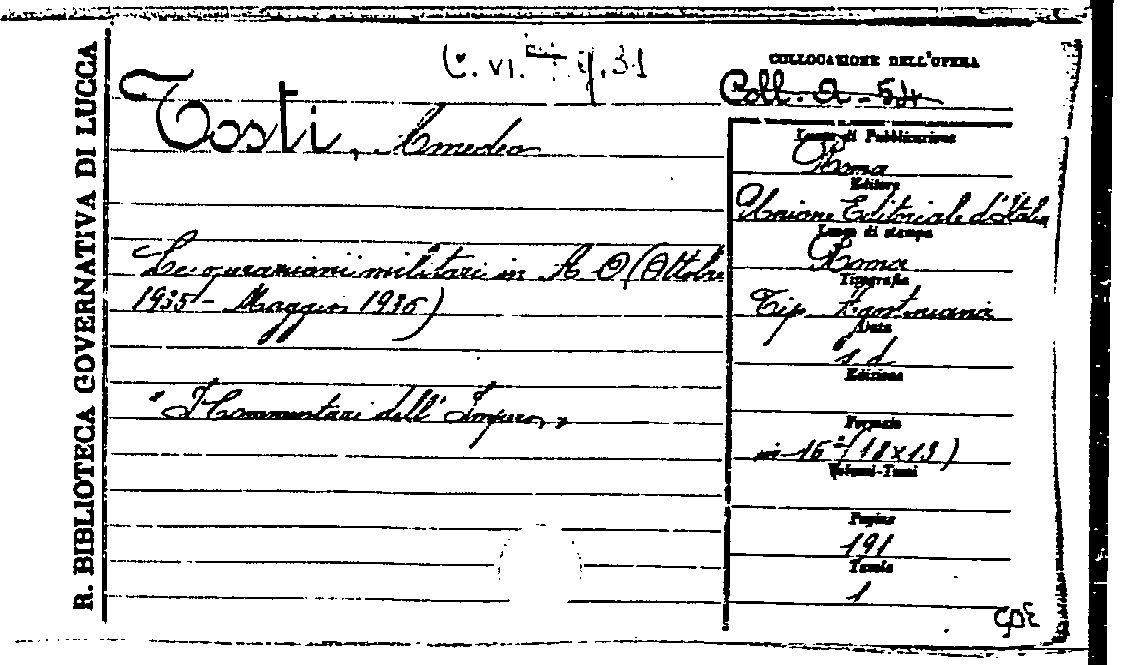 R. BIBLIOTECA GOVERNATIVA DI LUCCA
C. VI. 31
COLLOCAZIONE DELL'OPERA
Coll. A - 54
Tosti, Amedeo
Le operazioni militari in A O (Ottobre
1935 - Maggio 1936)
"I Commentari dell'Impero"
Luogo di Pubblicazione
Roma
Editore
Unione Editoriale d'Italia
Luogo di stampa
Roma
Tipografia
Tip. Agostiniana
Data
s. d.
Edizione
Formato
in-16° (18x13)
Volumi-Tomi
Pagine
191
Tavole
1